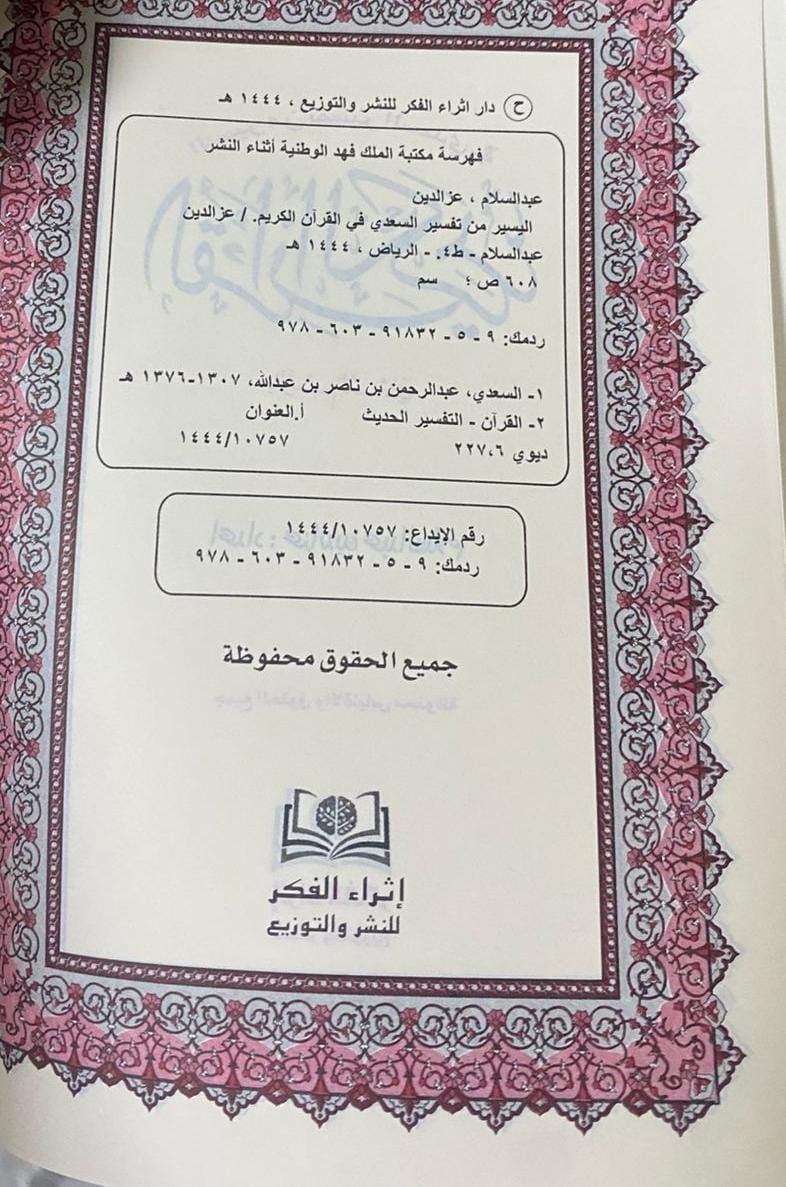 ح دار اثراء الفكر للنشر والتوزيع ، ١٤٤٤ هـ
فهرسة مكتبة الملك فهد الوطنية أثناء النشر
عبدالسلام ، عزالدين
اليسير من تفسير السعدي في القرآن الكريم. / عزالدين
عبدالسلام - ط٤. - الرياض ، ١٤٤٤ هـ
٦٠٨ ص ؛ سم
ردمك: ٩ - ٥ - ٩١٨٣٢ - ٦٠٣ - ٩٧٨
١- السعدي، عبدالرحمن بن ناصر بن عبدالله، ١٣٠٧-١٣٧٦ هـ
٢- القرآن - التفسير الحديث أ.العنوان
ديوي ٢٢٧،٦ ١٤٤٤/١٠٧٥٧
رقم الإيداع: ١٤٤٤/١٠٧٥٧
ردمك: ٩ - ٥ - ٩١٨٣٢ - ٦٠٣ - ٩٧٨
جميع الحقوق محفوظة
إثراء الفكر
للنشر والتوزيع